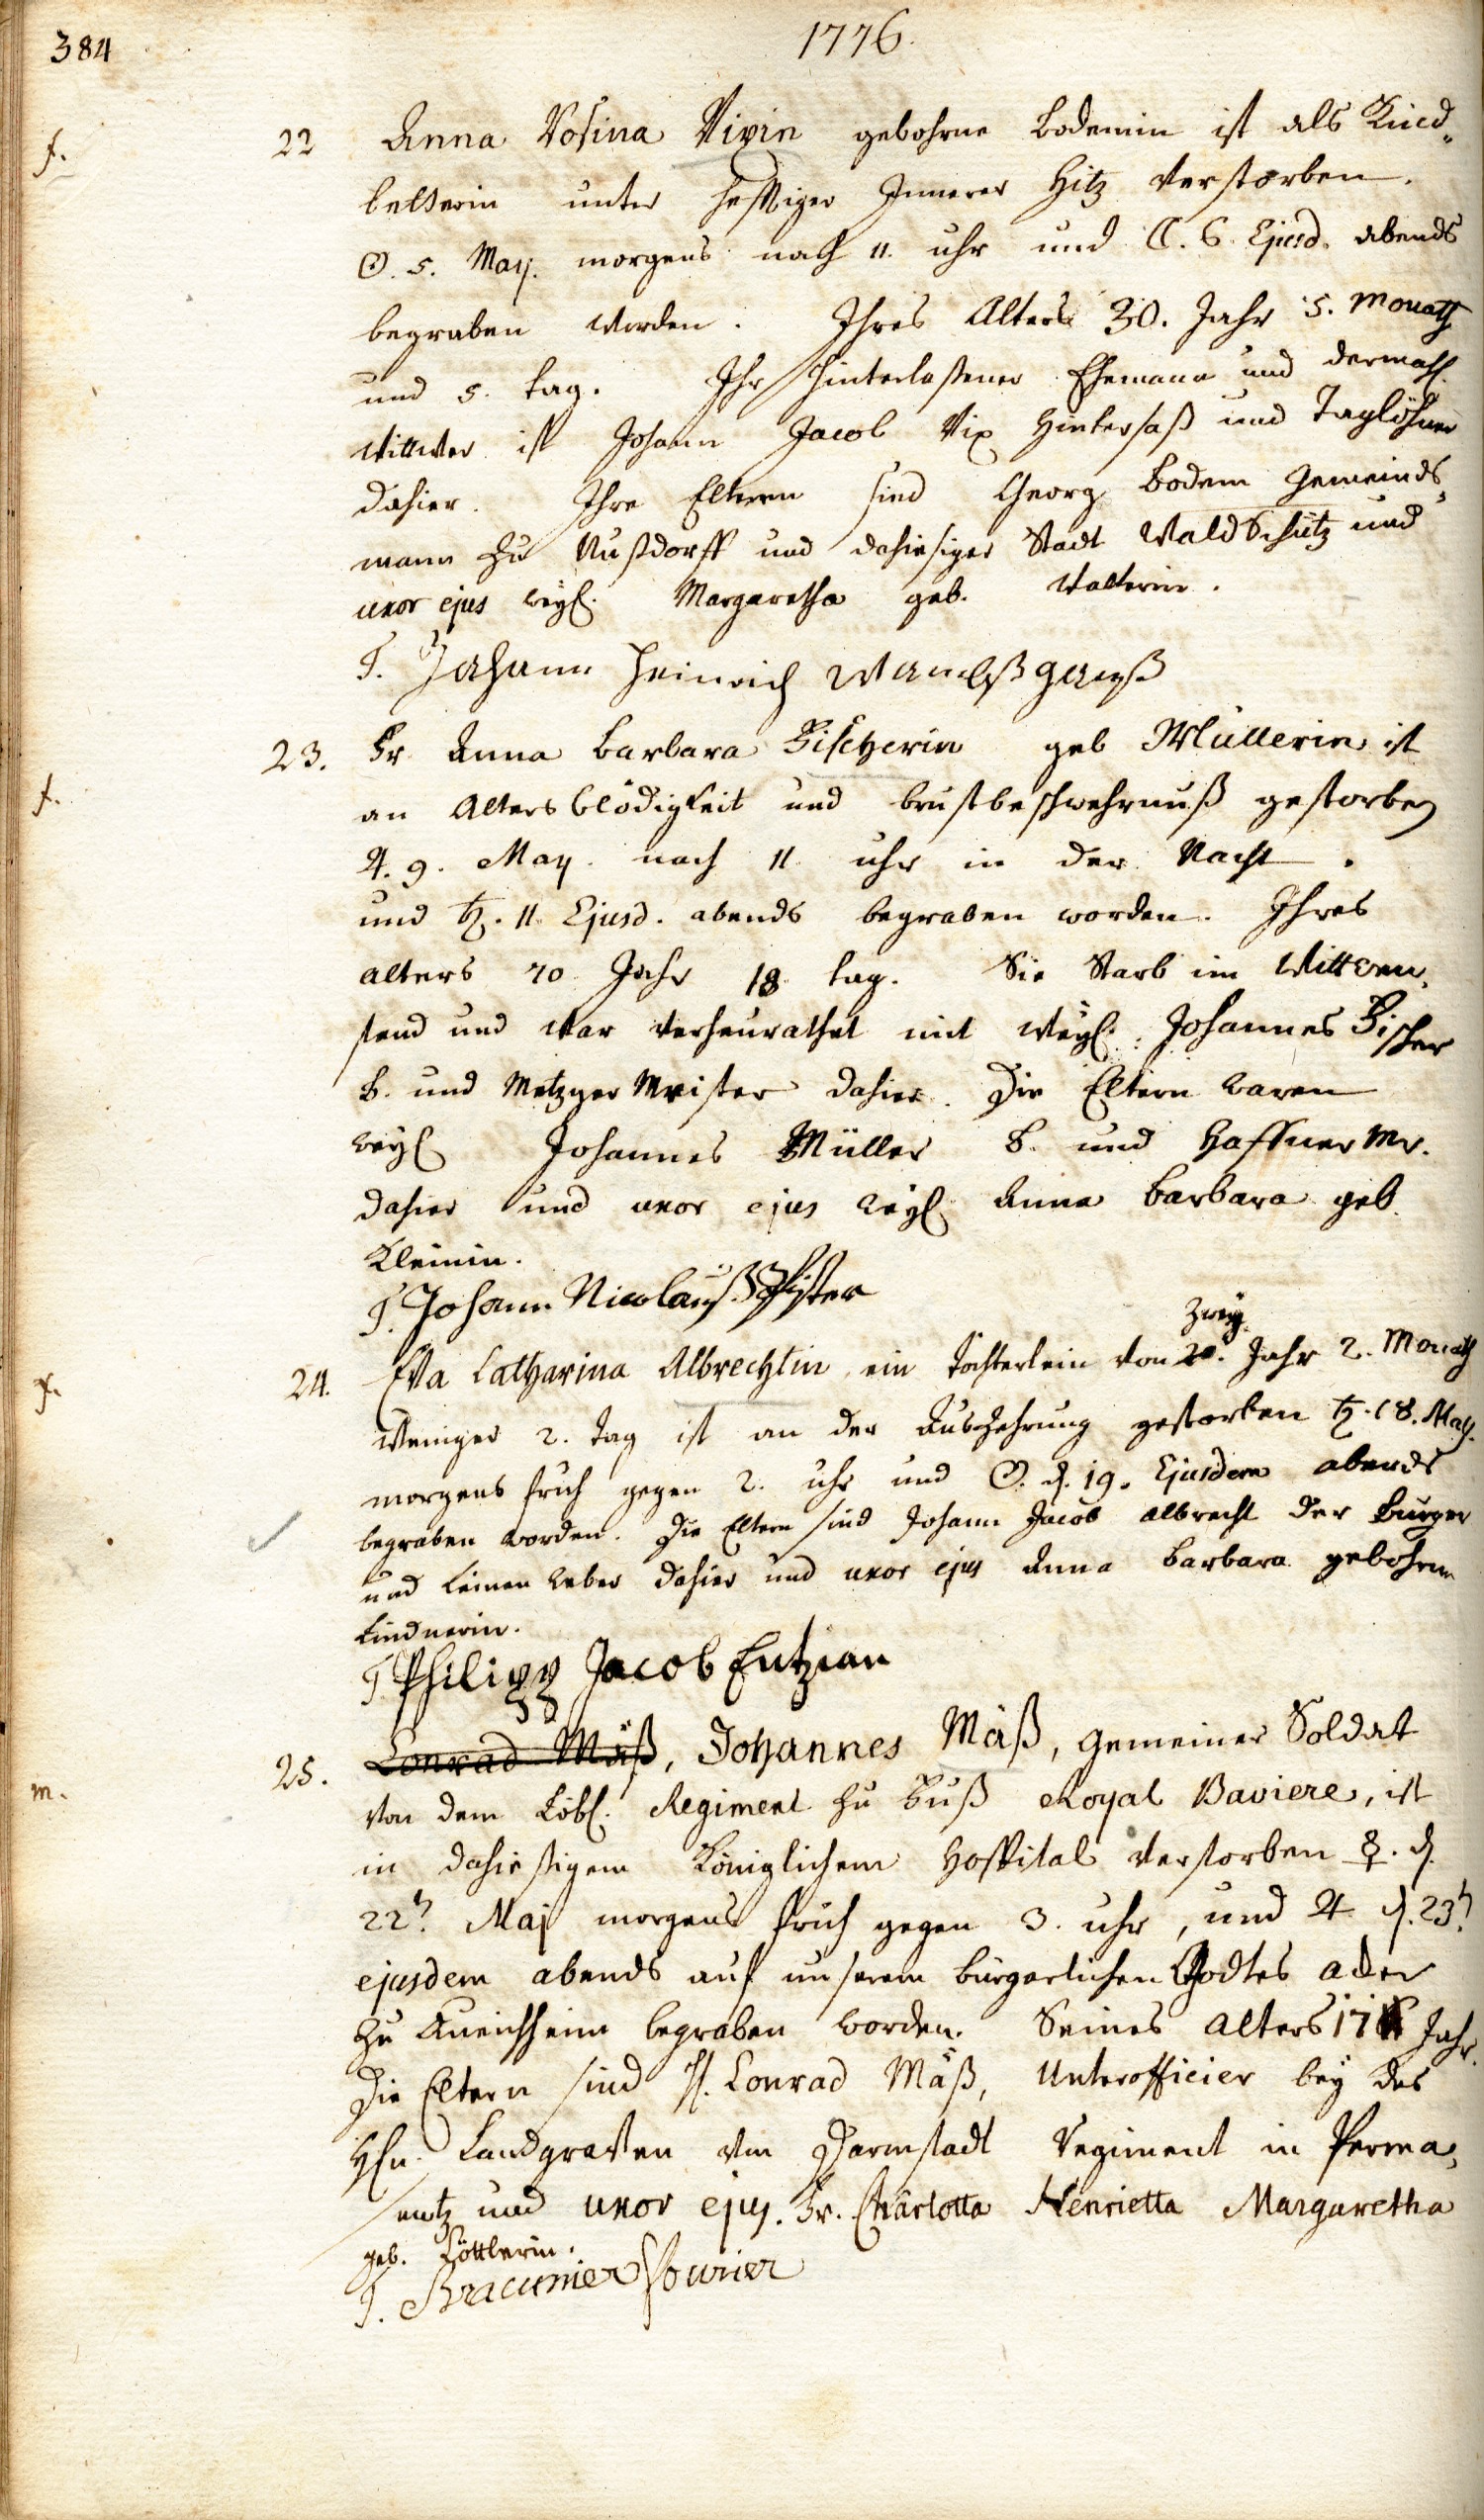 384
1776.
f.
22 Anna Rosina Vixin gebohrne Bodemin ist als Kind„
betterin unter hefftiger Innerer Hitz verstorben.
☉. 5. May. morgens nach 11. uhr und ☾. 6. Ejusd. abends
begraben worden. Ihres Alters 30. Jahr 5. Monath
und 5. tag. Ihr hinterlaßener Ehemann und dermahl.
Wittwer ist Johann Jacob Vix Hintersaß und Taglöhner
dahier. Ihre Eltern sind Georg Bodem Gemeinds„
mann zu Nußdorff und dahiesiger Stadt WaldSchütz und
uxor ejus weyl. Margaretha geb. Walterin.
T. Johann Heinrich Wambßganß
f.
23. Fr. Anna Barbara Fischerin geb Müllerin ist
an Alters blödigkeit und brustbeschwehrnuß gestorben
♃. 9. May. nach 11 uhr in der Nacht.
und ♄. 11. Ejusd. abends begraben worden. Ihres
alters 70 Jahr 18 tag. Sie Starb im Wittwen„
stand und war verheurathet mit weyl. Johannes Fischer
B. und Metzger Meister dahier. Die Eltern waren
weyl Johannes Müller B. und Haffner Mr.
dahier und uxor ejus weyl. Anna Barbara geb.
Kleinin.
T. Johann Nicolauß Pfister
f.
zwey
24. Eva Catharina Albrechtin ein Töchterlein von 20. Jahr 2. Monath
Weniger 2. Tag ist an der Auszehrung gestorben ♄. 18. May.
morgens früh gegen 2. uhr und ☉. d. 19. Ejusdem abends
begraben worden. Die Eltern sind Johann Jacob Albrecht der Burger
und Leinenweber dahier und uxor ejus Anna Barbara gebohrne
Lindnerin.
T. Philipp Jacob Entzian
m.
25. Conrad Mäß, Johannes Mäß, gemeiner Soldat
von dem Löbl. Regiment zu Fuß Royal Baviere, ist
in dahießigem Königlichem Hospital verstorben ☿. d.
22t. Maj morgens früh gegen 3. uhr, und ♃ d. 23t.
ejusdem abends auf unserem bürgerlichen Godtes acker
zu Queichheim begraben worden. Seines Alters 17 Jahr.
Die Eltern sind H. Conrad Mäß, Unterofficier bey des
Hln. Landgraven von Darmstadt Regiment in Perma„
sentz und uxor ejus. Fr. Charlotta Henrietta Margaretha
geb. Löttlerin.
T. Bracunier Fourier